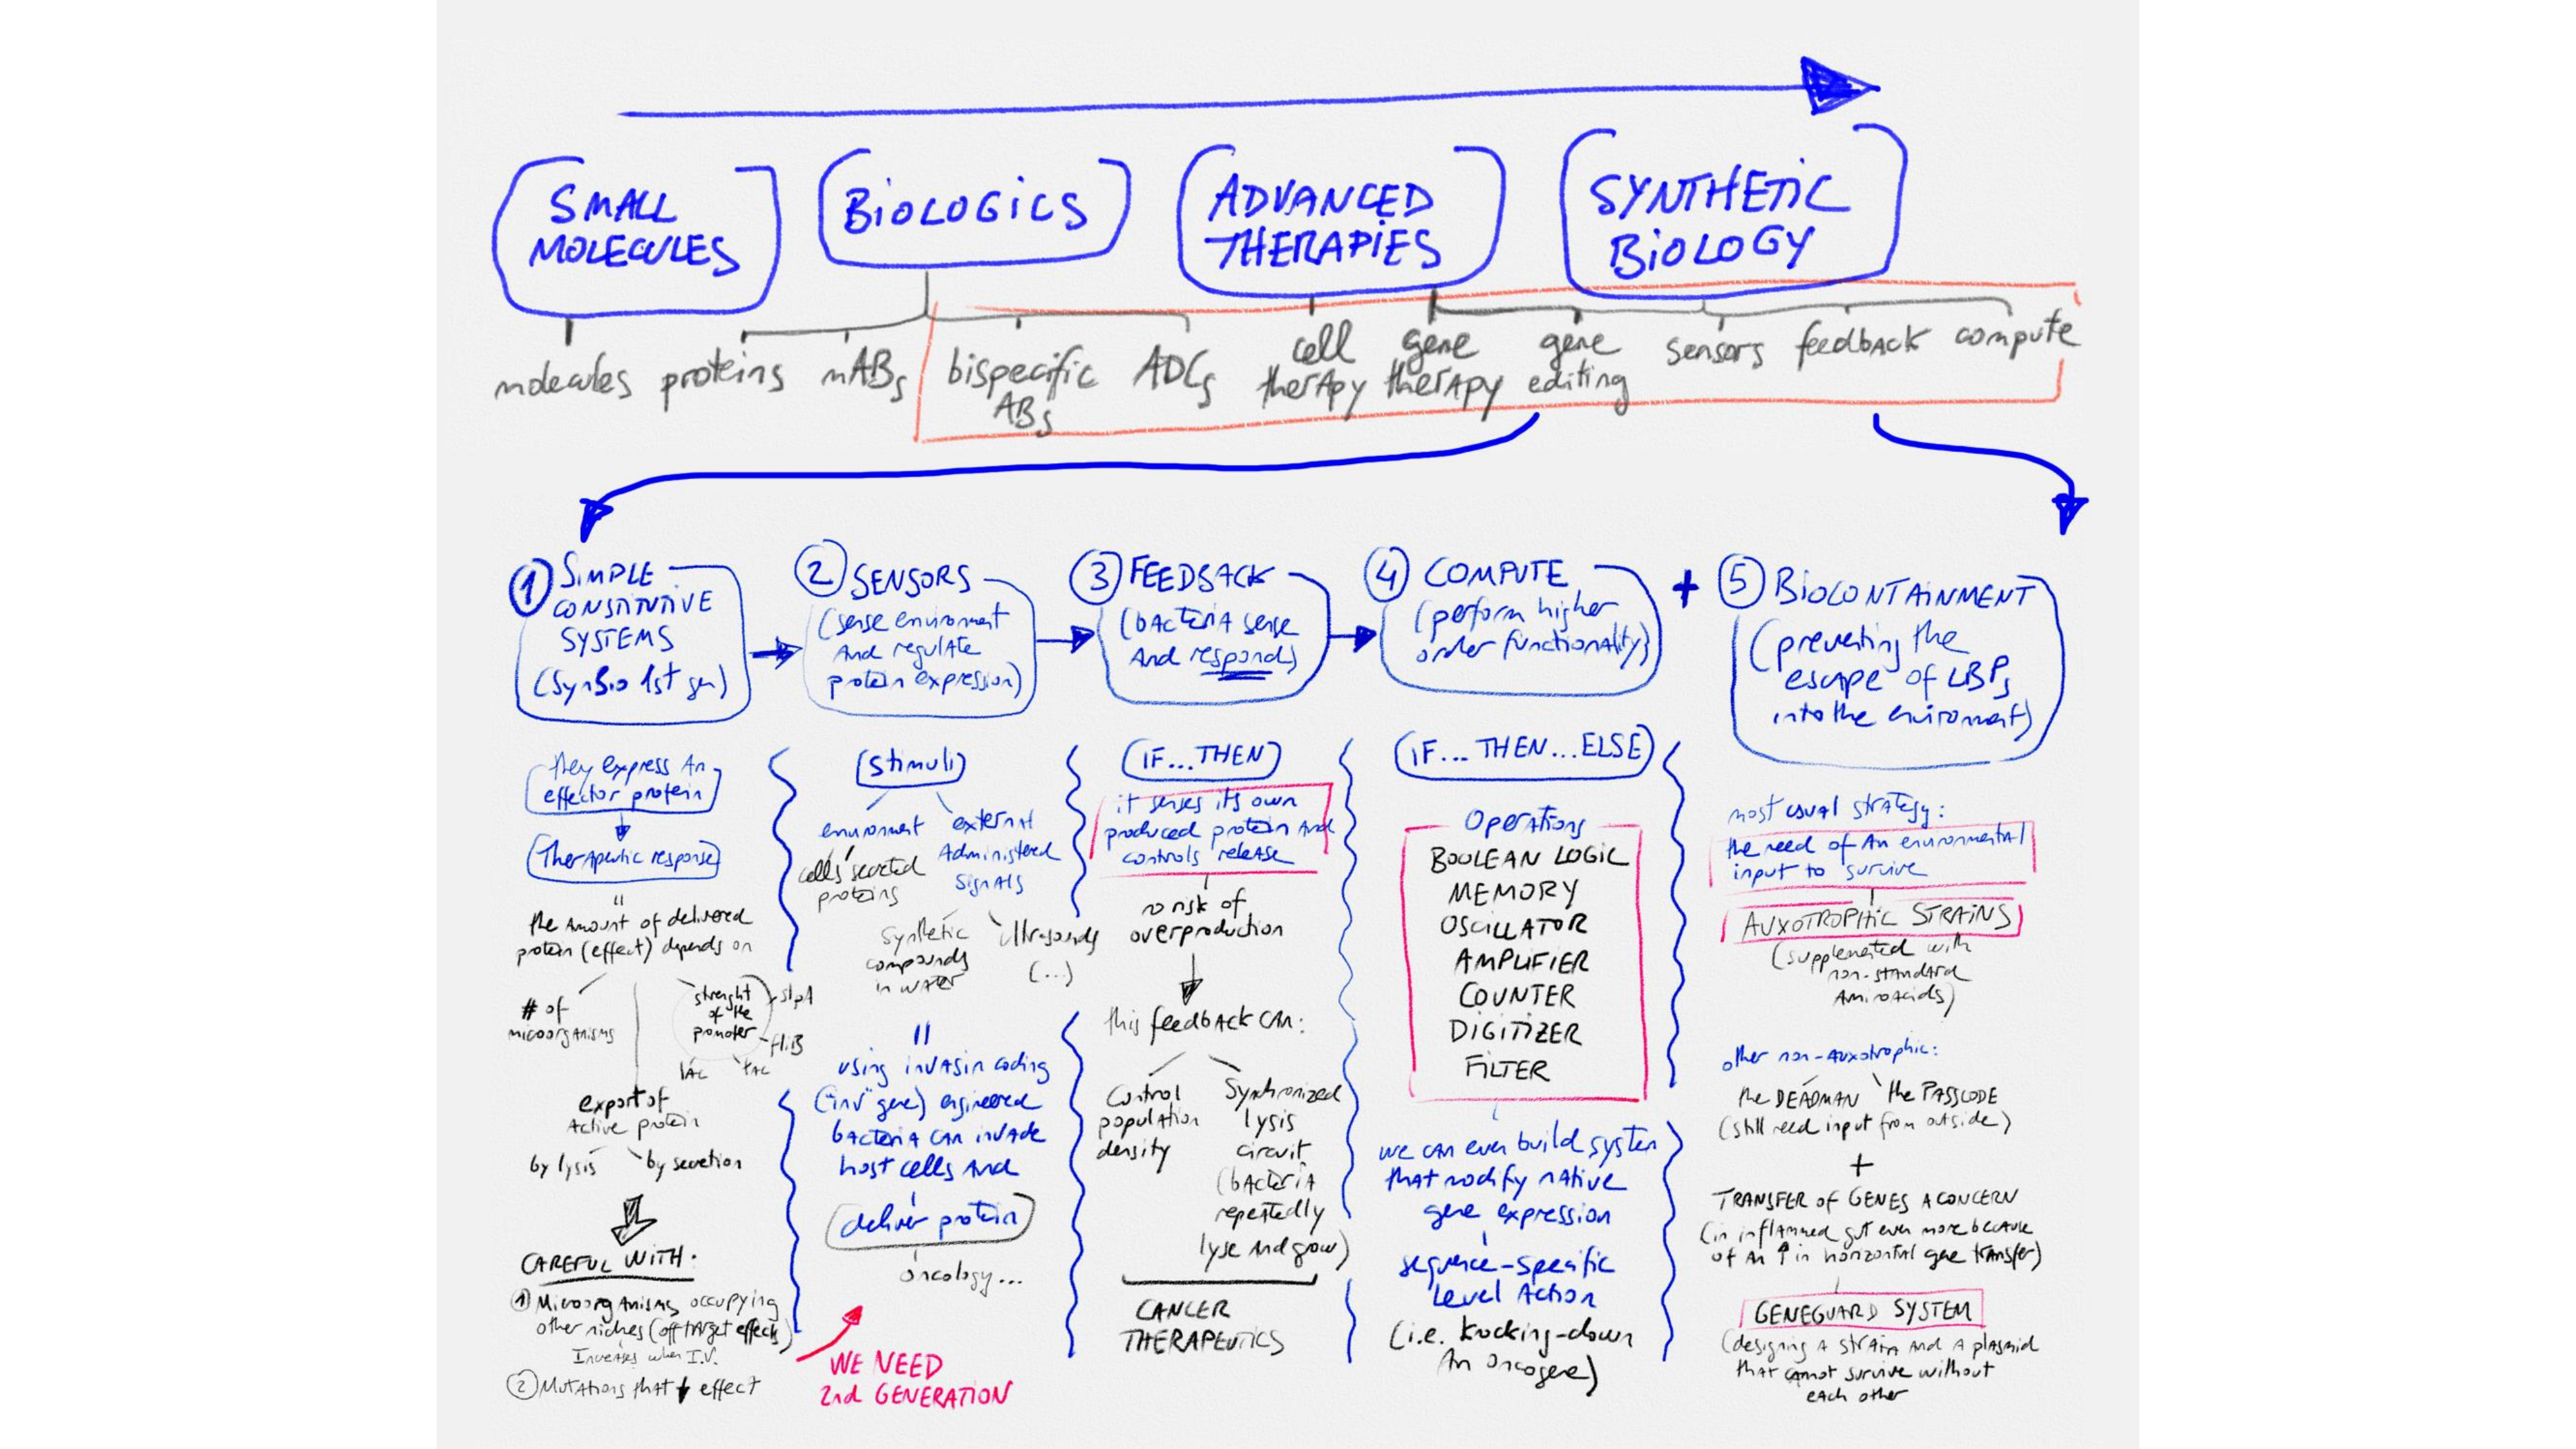 SMALL
MOLECULES
BiOLOGiCS
ADVANCED
THERAPiES
SYNTHETiC
BiOLOGY
molecules
proteins
mABs
bispecific
ABs
ADCs
cell
therapy
gene
therapy
gene
editing
sensors
feedback
compute
① SiMPLE
CONSTITUTIVE
SYSTEMS
(SynBio 1st gen)
② SENSORS
(sense environment
And regulate
protein expression)
③ FEEDBACK
(bacteria sense
And responds)
④ COMPUTE
(perform higher
order functionality)
+
⑤ BiOCONTAiNMENT
(preventing the
escape of LBPs
into the enviroment)
they express An
effector protein
Therapeutic response
"
the Amount of delivered
protein (effect) depends on
# of
microorganisms
strenght
of the
promoter
slpA
fliB
lac
tac
export of
Active protein
by lysis
by secretion
CAREFUL WiTH:
① Microorganisms occupying
other niches (off target effects)
Increases when I.V.
② Mutations that ↓ effect
(stimuli)
environment
cells' secreted
proteins
external
Administered
signals
synthetic
compounds
in water
ultrasounds
(...)
"
using invasin coding
("inv" gene) engineered
bacteria can invade
host cells and
deliver protein
oncology...
WE NEED
2nd GENERATION
(IF...THEN)
it senses its own
produced protein And
controls release
no risk of
overproduction
this feedback can:
Control
population
density
Synchronized
lysis
circuit
(bacteria
repeatedly
lyse And grow)
CANCER
THERAPEUTiCS
(IF... THEN...ELSE)
Operations
BOOLEAN LOGiC
MEMORY
OSCiLLATOR
AMPLiFiER
COUNTER
DiGiTiZER
FiLTER
we can even build system
that modify native
gene expression
sequence-specific
level Action
(i.e. knocking-down
An oncogene)
most usual strategy:
the need of An environmental
input to survive
AUXOTROPHiC STRAiNS
(supplemented with
non-standard
Aminoacids)
other non-Auxotrophic:
the DEADMAN
the PASSCODE
(still need input from outside)
+
TRANSFER of GENES A CONCERN
(in inflammed gut even more because
of An ↑ in horizontal gene transfer)
GENEGUARD SYSTEM
(designing A strain and A plasmid
that cannot survive without
each other